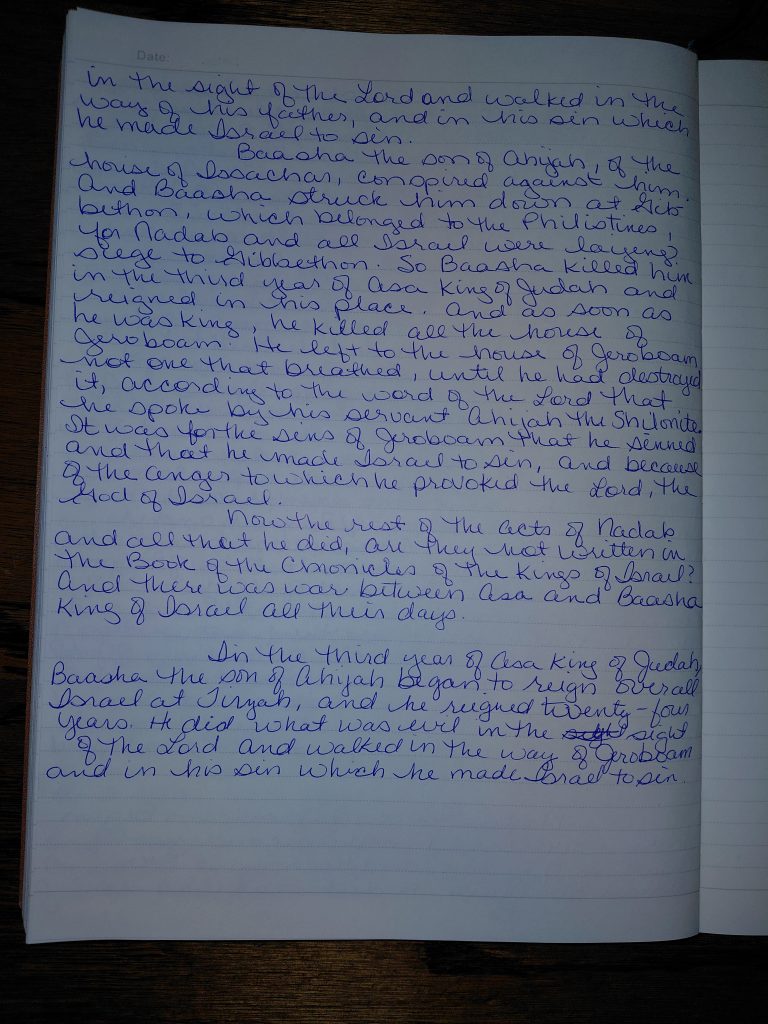 Date:
in the sight of the Lord and walked in the
way of his father, and in his sin which
he made Israel to sin.
Baasha the son of Ahijah, of the
house of Issachar, conspired against him.
And Baasha struck him down at Gib-
bethon, which belonged to the Philistines,
for Nadab and all Israel were laying
siege to Gibbethon. So Baasha killed him
in the third year of Asa King of Judah and
reigned in his place. And as soon as
he was king, he killed all the house of
Jeroboam. He left to the house of Jeroboam
not one that breathed, until he had destroyed
it, according to the word of the Lord that
he spoke by his servant Ahijah the Shilonite.
It was for the sins of Jeroboam that he sinned
and that he made Israel to sin, and because
of the anger to which he provoked the Lord, the
God of Israel.
Now the rest of the acts of Nadab
and all that he did, are they not written in
the Book of the Chronicles of the Kings of Israel?
And there was war between Asa and Baasha
King of Israel all their days.
In the third year of Asa King of Judah,
Baasha the son of Ahijah began to reign over all
Israel at Tirzah, and he reigned twenty-four
years. He did what was evil in the sight
of the Lord and walked in the way of Jeroboam
and in his sin which he made Israel to sin.